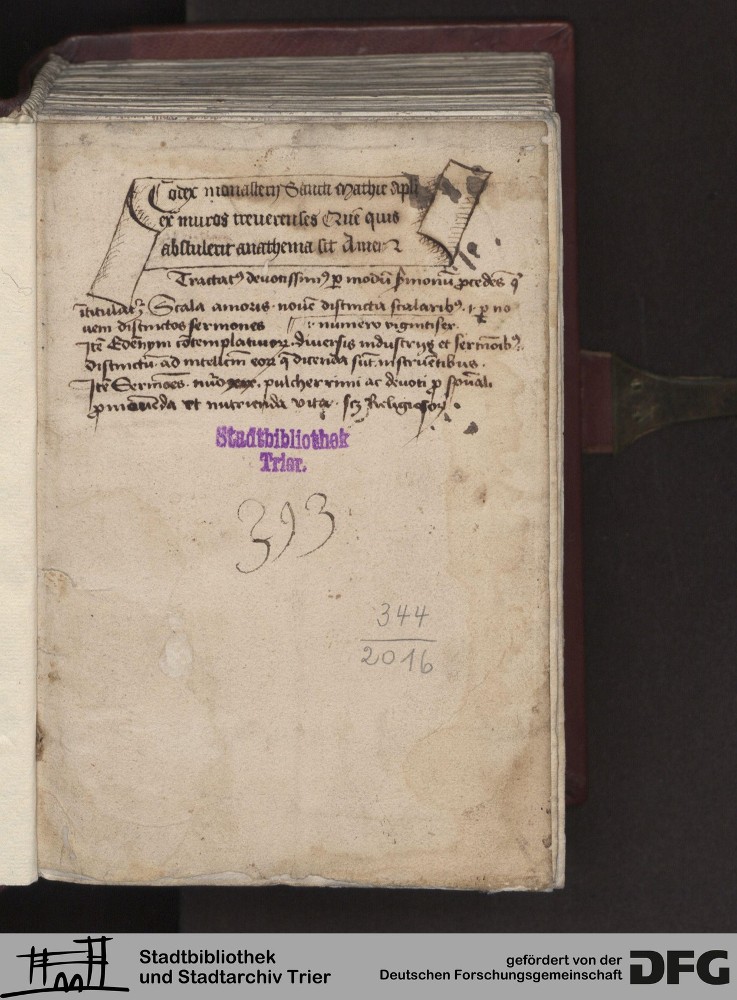 Codex monasterij Sancti Mathie apli
ex muros treverenses Que quis
abstulerit anathema sit Amen
Tractatꝰ devotissimꝰ ꝑ modũ ẜmonũ ꝓcedẽs q̃
ĩtitulatᷣ Scala amoris · novẽ distincta scalaribꝰ · ⁊ ꝑ no
vem distinctos sermones · numero vigintisex ·
Itẽ Edenym cõtemplativoꝝ · diversis industrijs et sermõibꝰ
distinctũ · ad intellcm̃ eoꝝ q̃ dicenda sũt · instruẽtibus ·
Itẽ Sermões · nũo xxx · pulcherrimi ac devoti ꝓ spũali
ꝓmovẽda et nutrienda vita · scꝫ Religiosoꝝ ·
Stadtbibliothek
Trier.
393
344
2016
Stadtbibliothek
und Stadtarchiv Trier
gefördert von der
Deutschen Forschungsgemeinschaft
DFG